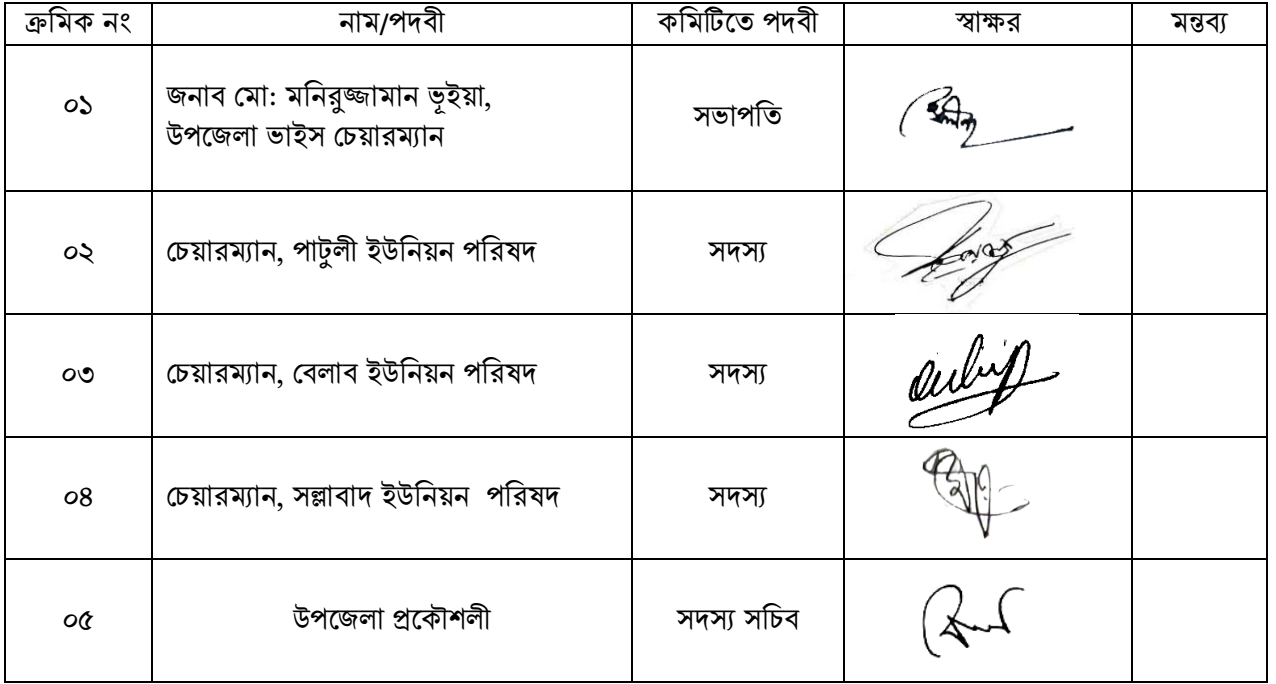 ক্রমিক নং নাম/পদবী কমিটিতে পদবী স্বাক্ষর মন্তব্য
০১ জনাব মো: মনিরুজ্জামান ভূইয়া,
উপজেলা ভাইস চেয়ারম্যান সভাপতি
০২ চেয়ারম্যান, পাটুলী ইউনিয়ন পরিষদ সদস্য
০৩ চেয়ারম্যান, বেলাব ইউনিয়ন পরিষদ সদস্য
০৪ চেয়ারম্যান, সল্লাবাদ ইউনিয়ন পরিষদ সদস্য
০৫ উপজেলা প্রকৌশলী সদস্য সচিব